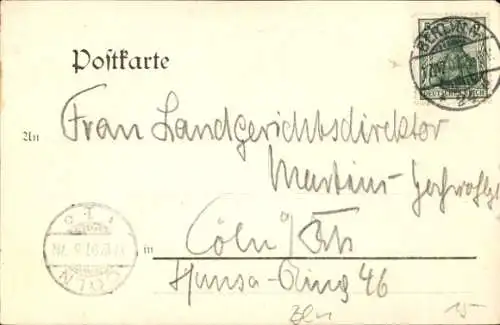 Postkarte
BERLIN
DEUTSCHES REICH
An Frau Landgerichtsdirektor
Martius-Hochwohlg
in Cöln a/Rh
Hansa-Ring 46
CÖLN
15